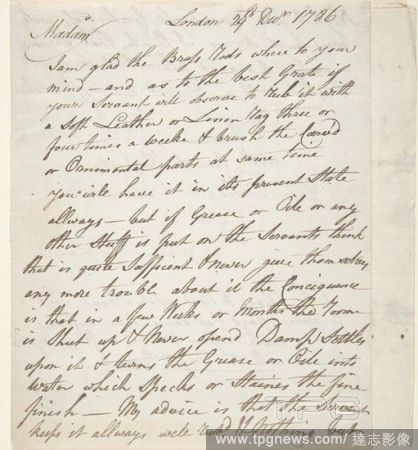 London 29th Decr 1786
Madam
I am glad the Brass Rods where to your
mind — and as to the best Grate if
yours Servant will observe to rub it with
a Soft Leather or Linen Rag three or
four times a weeke & brush the Carved
or Ornimental parts at same time
you will have it in its present State
allways — but if Grease or Oile or any
other Stuff is put on the Servants think
that is quite Suffient & never give themselves
any more trouble about it the Conciquance
is that in a few Weeks or Months the Roome
is Shut up & Never opend Damp Settles
upon it & turns the Grease or Oile into
Water which Specks or Staines the fine
finish — My advice is that the Servant
keeps it allways well Rubd & Nothing
www.tpgnews.com 達志影像